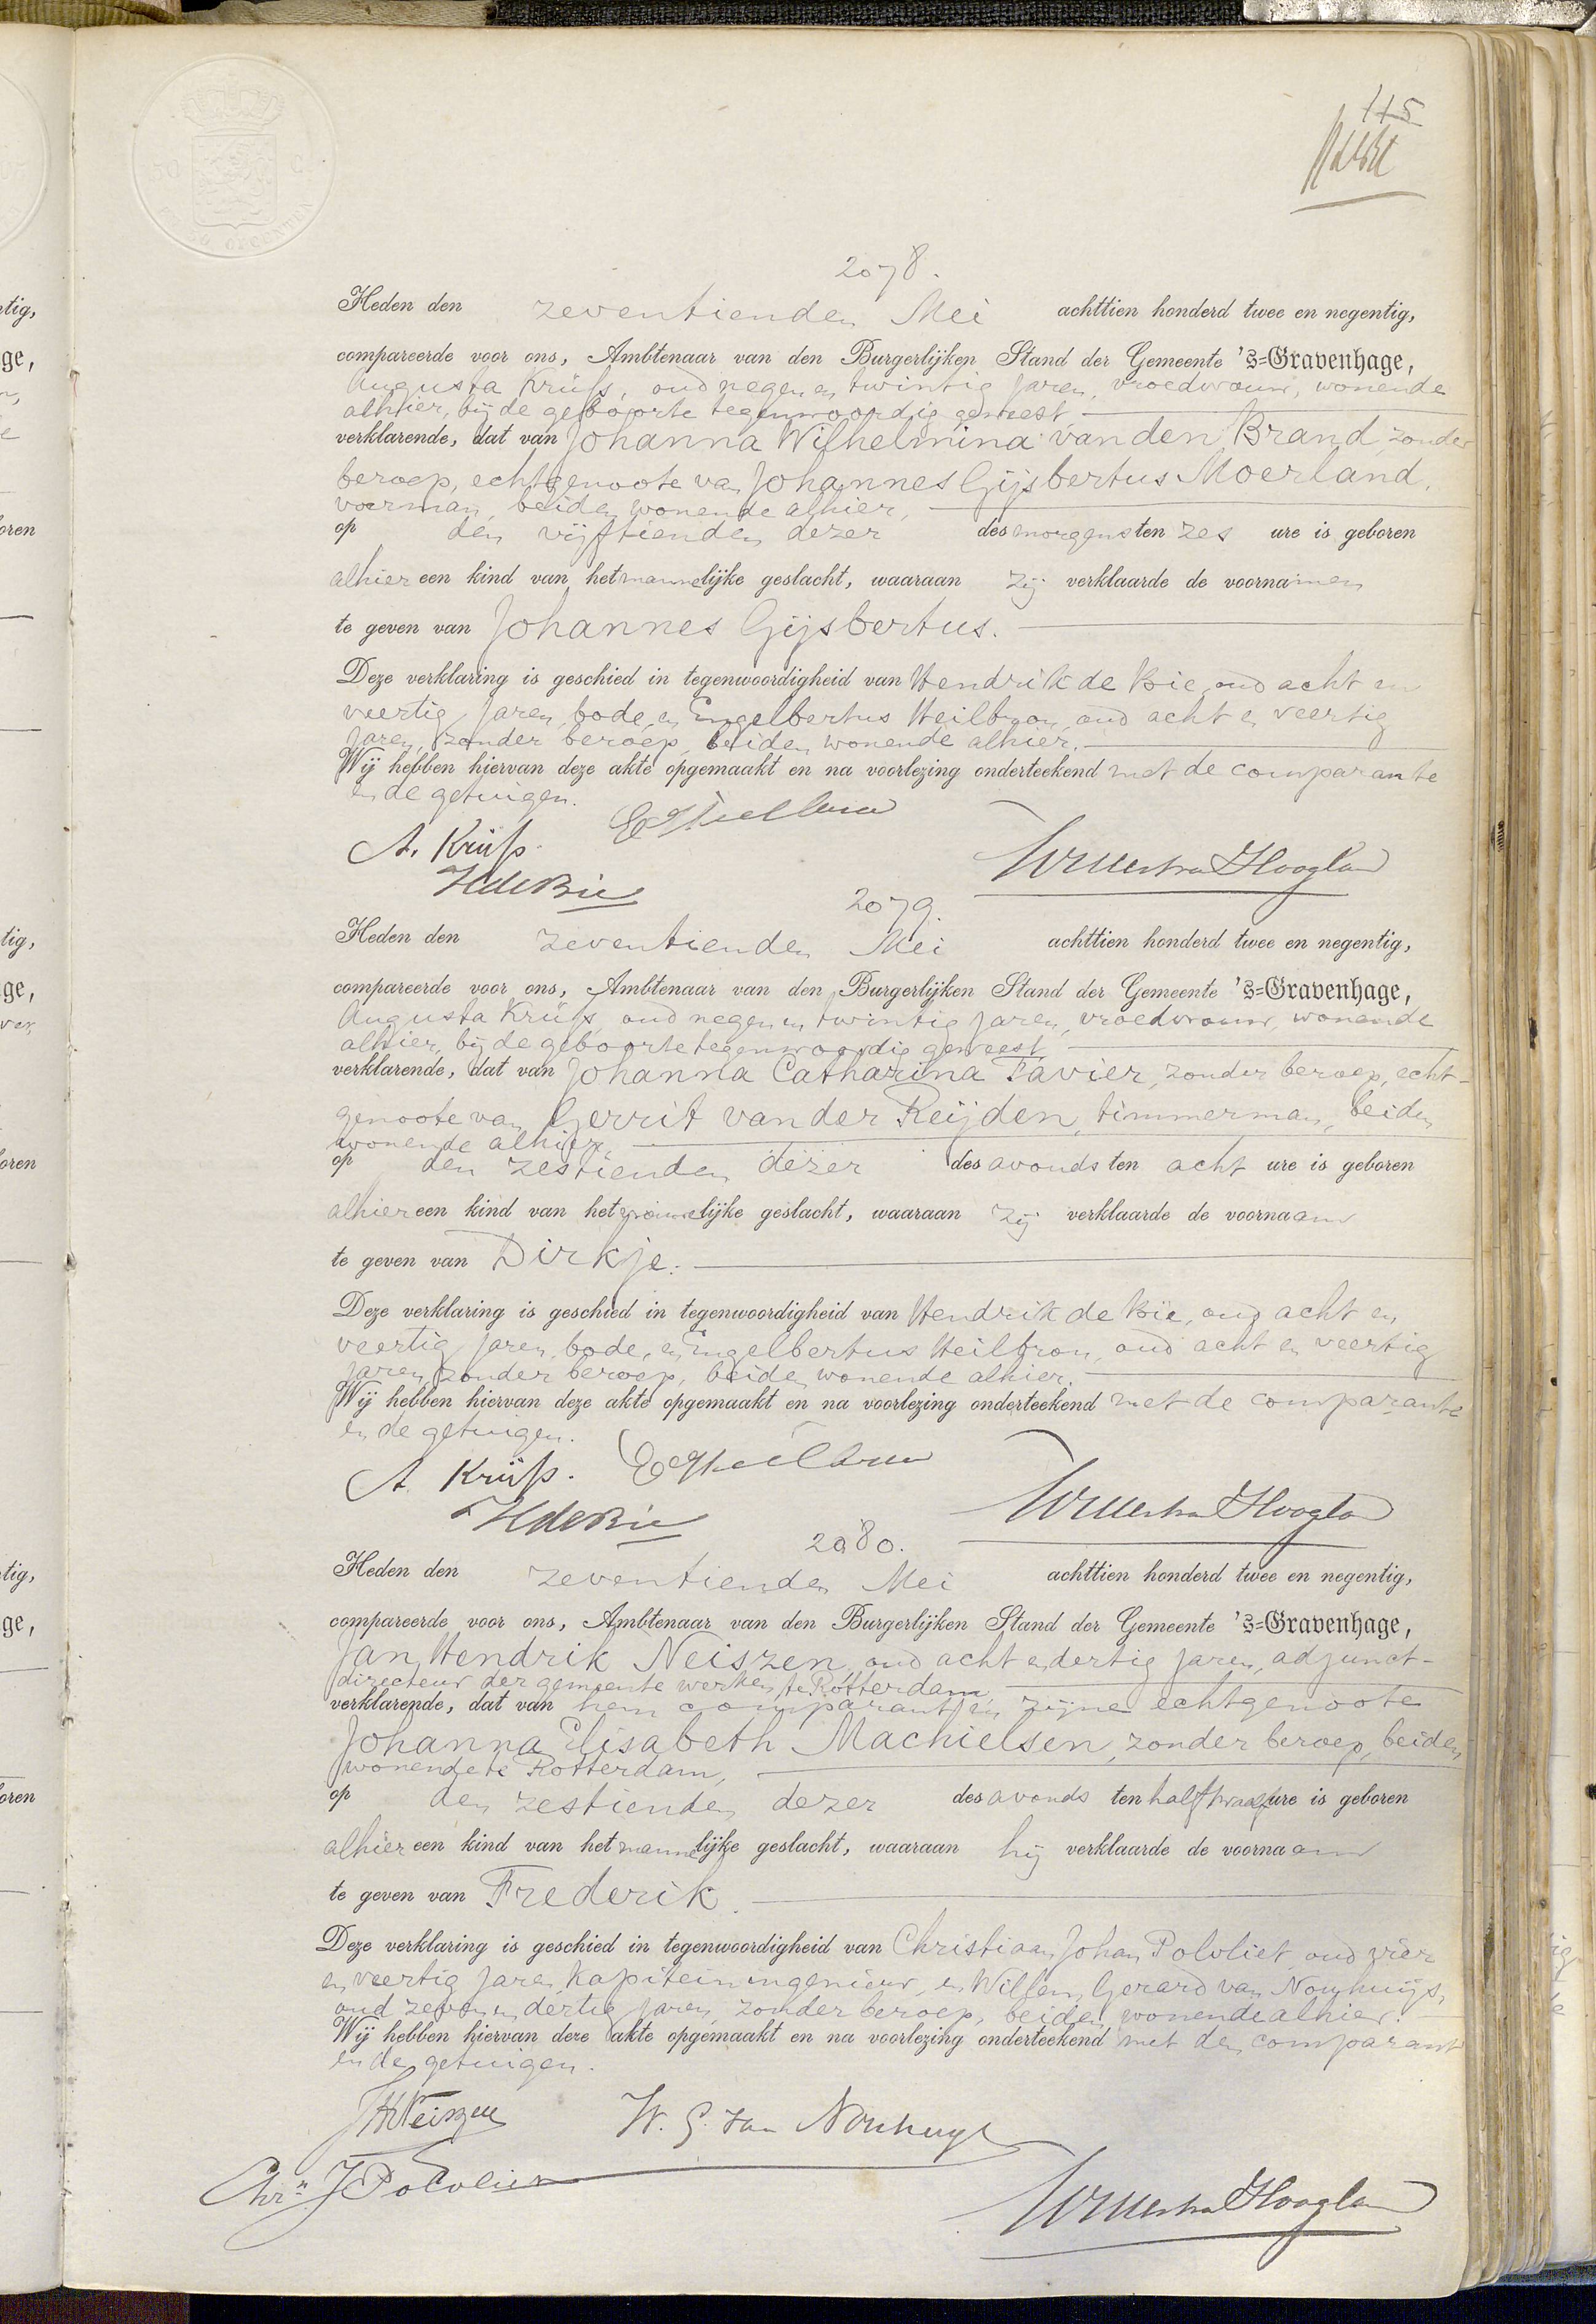 115
2078.
Heden den zeventienden Mei achttien honderd twee en negentig,
compareerde voor ons, Ambtenaar van den Burgerlijken Stand der Gemeente 's=Gravenhage,
Augusta Krüss, oud negen en twintig jaren, vroedvrouw, wonende
alhier, bij de geboorte tegenwoordig geweest
verklarende, dat van Johanna Wilhelmina van den Brand, zonder
beroep, echtgenoote van Johannes Gijsbertus Moerland,
voerman, beiden wonende alhier,
op den vijftienden dezer des morgens ten zes ure is geboren
alhier een kind van het mannelijke geslacht, waaraan zij verklaarde de voornamen
te geven van Johannes Gijsbertus.
Deze verklaring is geschied in tegenwoordigheid van Hendrik de Bie, oud acht en
veertig jaren, bode, en Engelbertus Heilbron, oud acht en veertig
jaren, zonder beroep, beiden wonende alhier.
Wij hebben hiervan deze akte opgemaakt en na voorlezing onderteekend met de comparante
en de getuigen.
A. Krüss. E Heilbron
H de Bie
2079.
Heden den zeventienden Mei achttien honderd twee en negentig,
compareerde voor ons, Ambtenaar van den Burgerlijken Stand der Gemeente 's=Gravenhage,
Augusta Krüss, oud negen en twintig jaren, vroedvrouw, wonende
alhier, bij de geboorte tegenwoordig geweest
verklarende, dat van Johanna Catharina Tavier, zonder beroep, echt-
genoote van Gerrit van der Reijden, timmerman, beiden
wonende alhier,
op den zestienden dezer des avonds ten acht ure is geboren
alhier een kind van het vrouwelijke geslacht, waaraan zij verklaarde de voornaam
te geven van Dirkje.
Deze verklaring is geschied in tegenwoordigheid van Hendrik de Bie, oud acht en
veertig jaren, bode, en Engelbertus Heilbron, oud acht en veertig
jaren, zonder beroep, beiden wonende alhier.
Wij hebben hiervan deze akte opgemaakt en na voorlezing onderteekend met de comparante
en de getuigen.
A. Krüss. E Heilbron
H de Bie
2080.
Heden den zeventienden Mei achttien honderd twee en negentig,
compareerde voor ons, Ambtenaar van den Burgerlijken Stand der Gemeente 's=Gravenhage,
Jan Hendrik Neiszen, oud acht en dertig jaren, adjunct-
directeur der gemeente werken te Rotterdam
verklarende, dat van hem comparant en zijne echtgenoote
Johanna Elisabeth Machielsen, zonder beroep, beiden
wonende te Rotterdam,
op den zestienden dezer des avonds ten half twaalf ure is geboren
alhier een kind van het mannelijke geslacht, waaraan hij verklaarde de voornaam
te geven van Frederik.
Deze verklaring is geschied in tegenwoordigheid van Christiaan Johan Polvliet, oud vier
en veertig jaren, kapitein ingenieur, en Willem Gerard van Nouhuijs,
oud zeven en dertig jaren, zonder beroep, beiden wonende alhier.
Wij hebben hiervan deze akte opgemaakt en na voorlezing onderteekend met den comparant
en de getuigen.
JHNeiszen W. G. van Nouhuys
Chrn J Polvliet